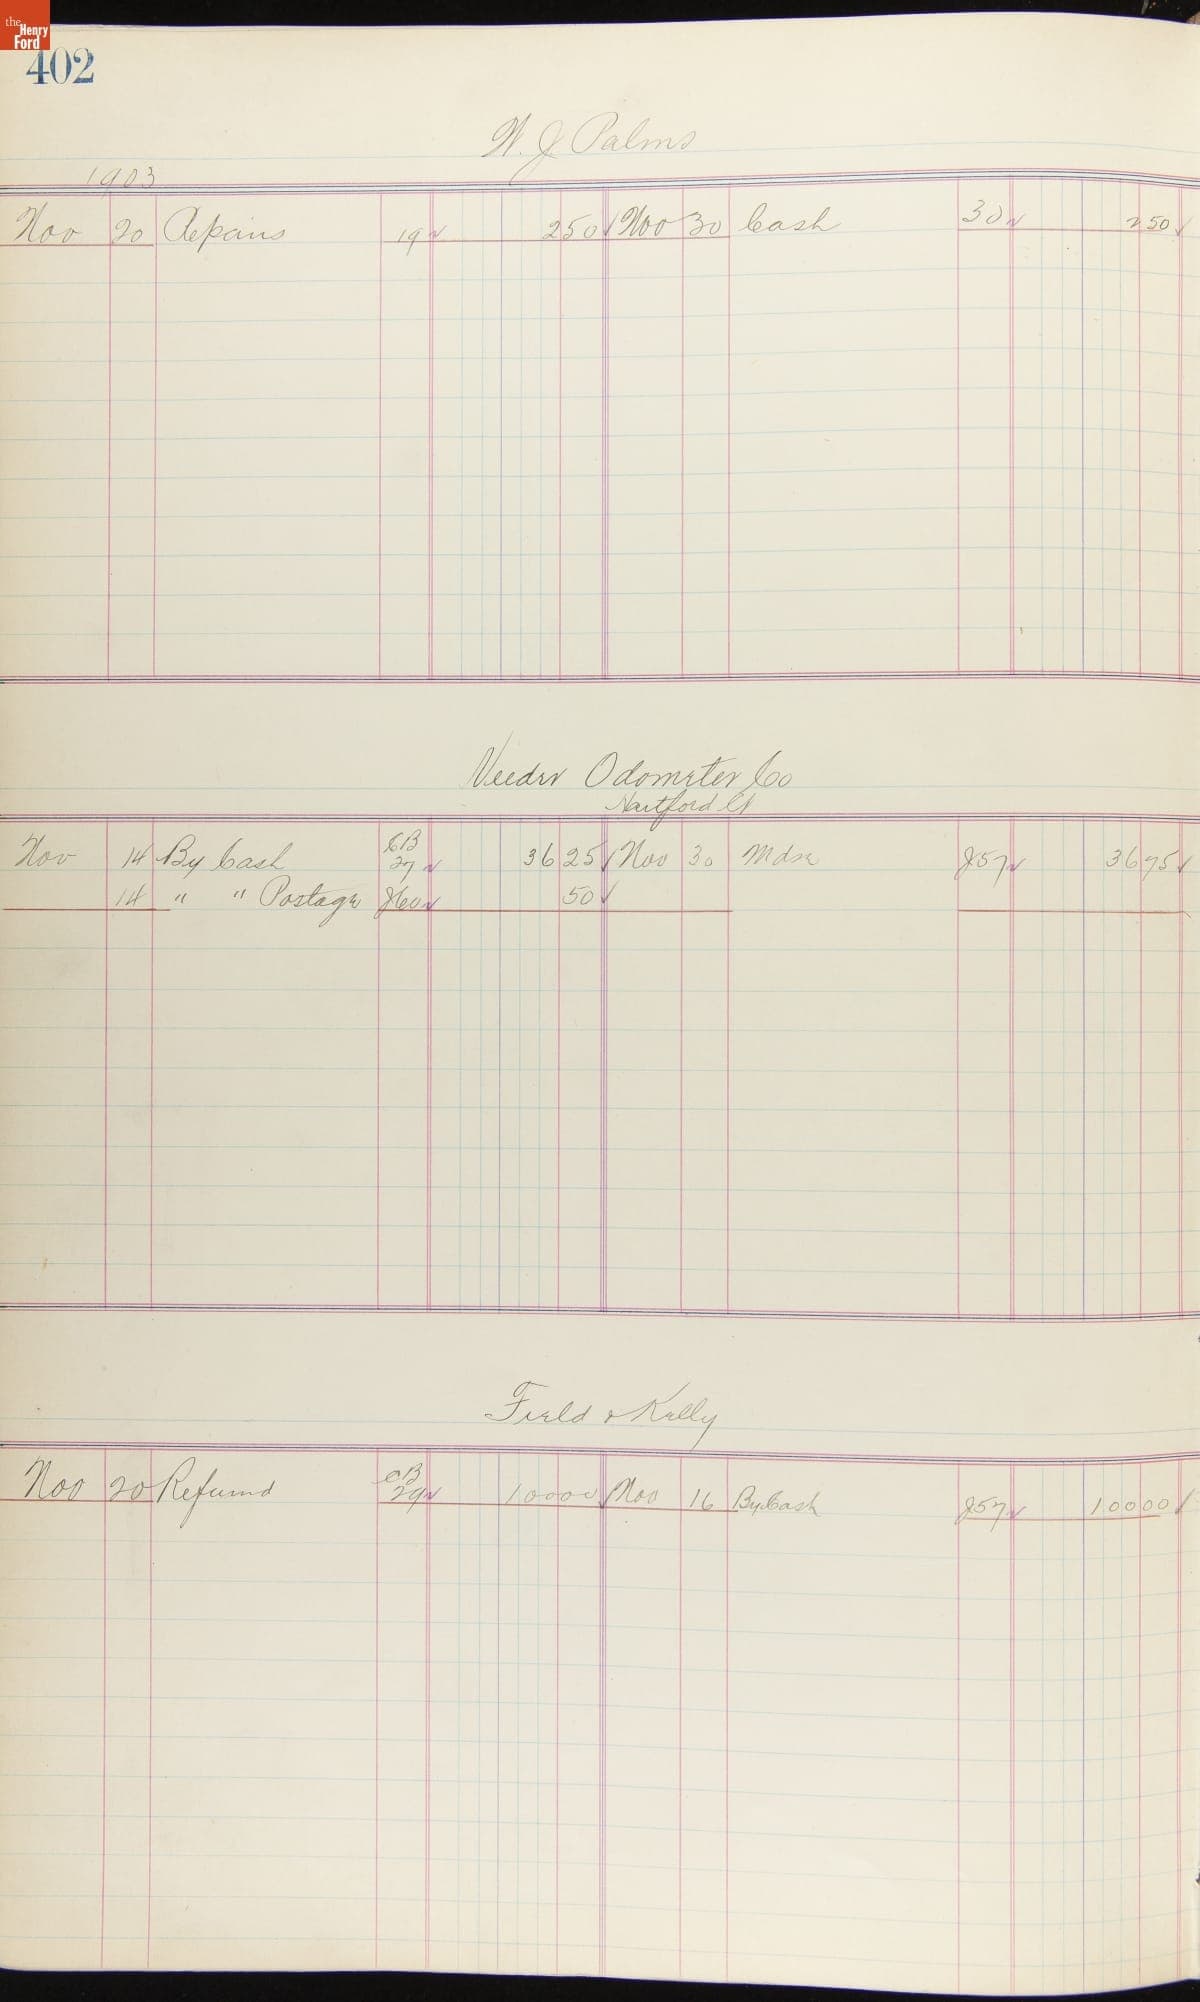 the Henry Ford
402
W. J Palms
1903
Nov 20 Repairs 19 250 Nov 30 Cash 30 250
Veeder Odometer Co
Hartford Ct
Nov 14 By Cash CB 27 36 25 Nov 30 Mdse J57 36 75
14 " " Postage J60 50
Field & Kelly
Nov 20 Refund CB 29 100 00 Nov 16 By Cash J57 100 00